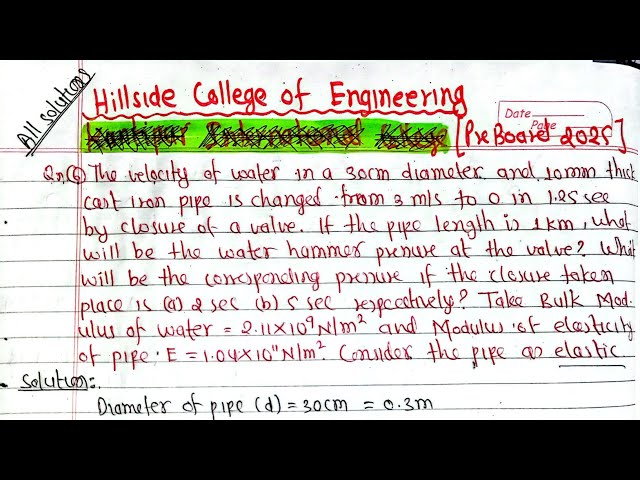 All solutions
Hillside College of Engineering
Date
Page
[Pre Board 2025]
Qn.⑥ The velocity of water in a 30cm diameter and 10mm thick
cast iron pipe is changed from 3 m/s to 0 in 1.25 sec
by closure of a valve. If the pipe length is 1km, what
will be the water hammer pressure at the valve? What
will be the corresponding pressure if the closure taken
place is (a) 2 sec (b) 5 sec respectively? Take Bulk Mod-
ulus of water = 2.11×10⁹N/m² and Modulus of elasticity
of pipe E = 1.04×10¹¹N/m². Consider the pipe as elastic
Solution:-
Diameter of pipe (d) = 30cm = 0.3m